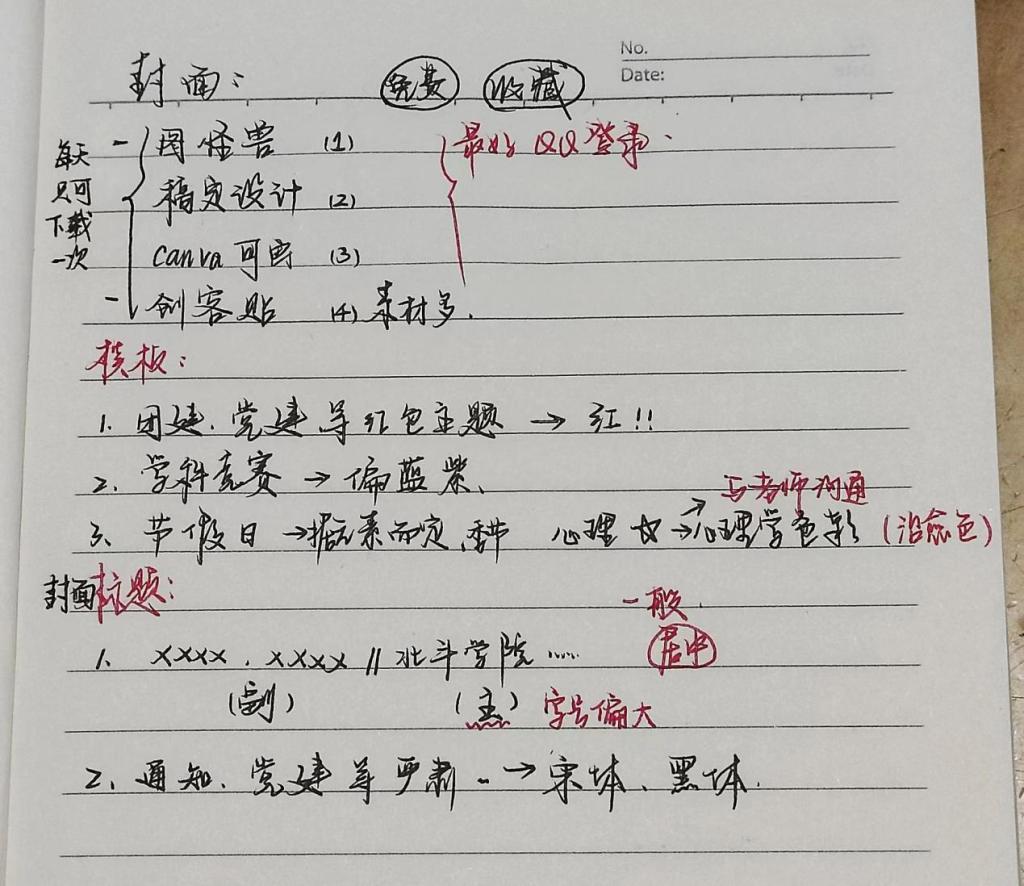 No.
Date:
封面： 免费 收藏
每天只可下载一次
图怪兽 (1) 最好QQ登录.
稿定设计 (2)
Canva可画 (3)
创客贴 (4) 素材多.
模板：
1. 团建、党建等红色主题 → 红!!
2. 学科竞赛 → 偏蓝紫、
→ 与老师沟通
3. 节假日 → 据元素而定、季节 心理 → 心理学色彩 (治愈色)
封面标题：
一般
1. xxxx . xxxx // 北斗学院 ...... 居中
(副) (主) 字号偏大
2. 通知、党建等严肃 → 宋体、黑体.